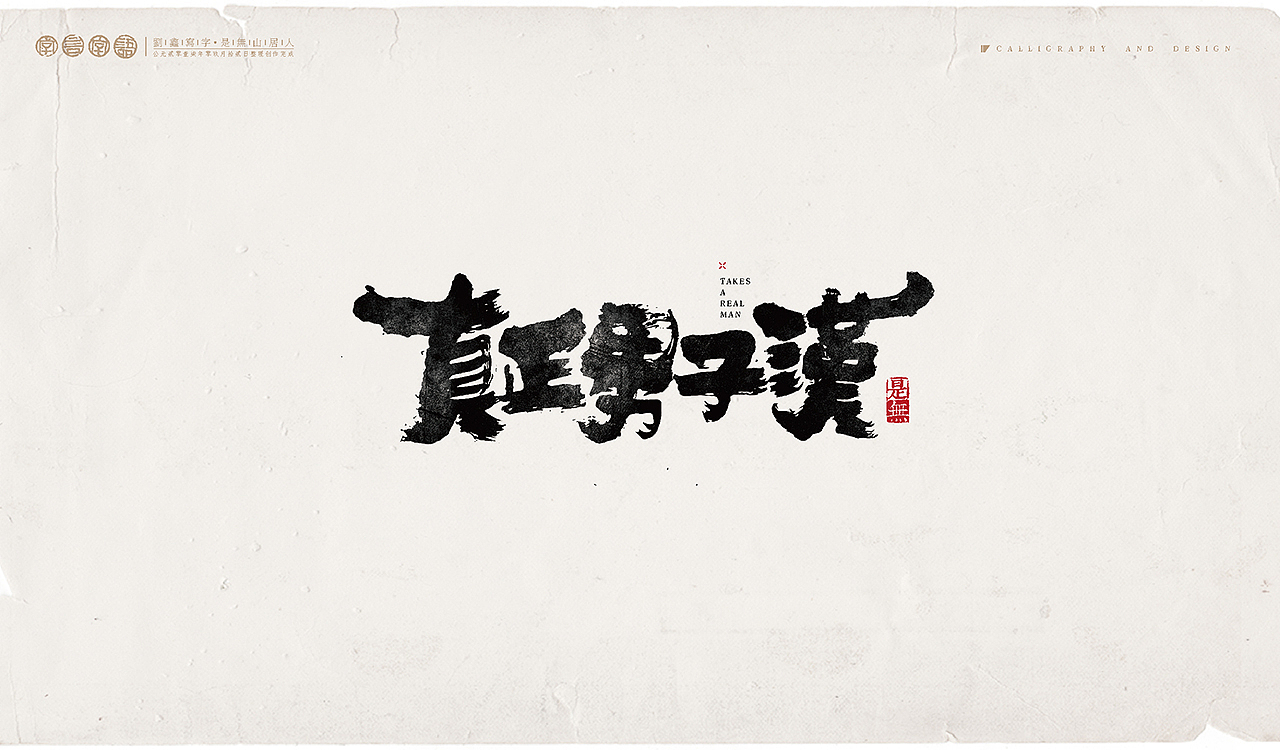 劉鑫寫字•是無山居人
CALLIGRAPHY AND DESIGN
TAKES
A
REAL
MAN
真正男子漢
是無